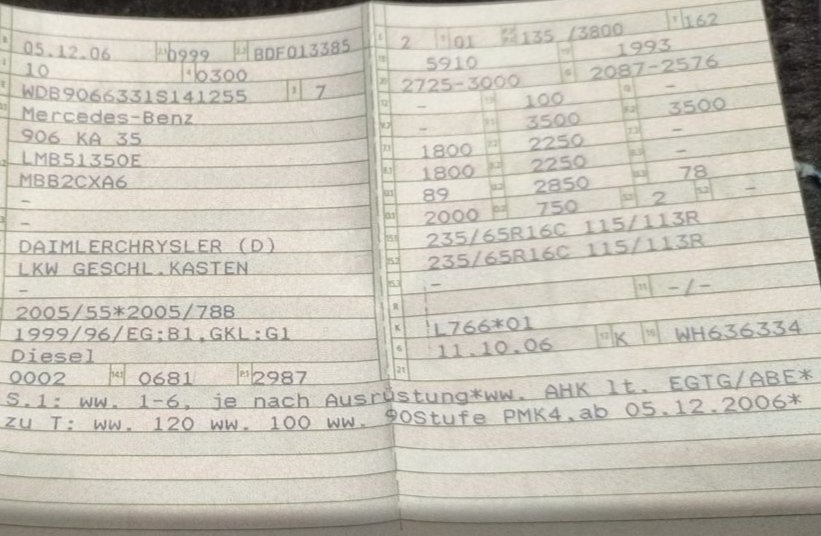 05.12.06 0999 BDF013385
10 0300
WDB9066331S141255 7
Mercedes-Benz
906 KA 35
LMB51350E
MBB2CXA6
-
-
DAIMLERCHRYSLER (D)
LKW GESCHL.KASTEN
-
2005/55*2005/78B
1999/96/EG;B1,GKL:G1
Diesel
0002 0681 2987
2 01 135 /3800 162
5910 1993
2725-3000 2087-2576
- 100 -
- 3500 3500
1800 2250 -
1800 2250 -
89 2850 78
2000 750 2 -
235/65R16C 115/113R
235/65R16C 115/113R
-
-/-
L766*01
11.10.06 K WH636334
S.1: ww. 1-6, je nach Ausrüstung*ww. AHK lt. EGTG/ABE*
zu T: ww. 120 ww. 100 ww. 90Stufe PMK4,ab 05.12.2006*